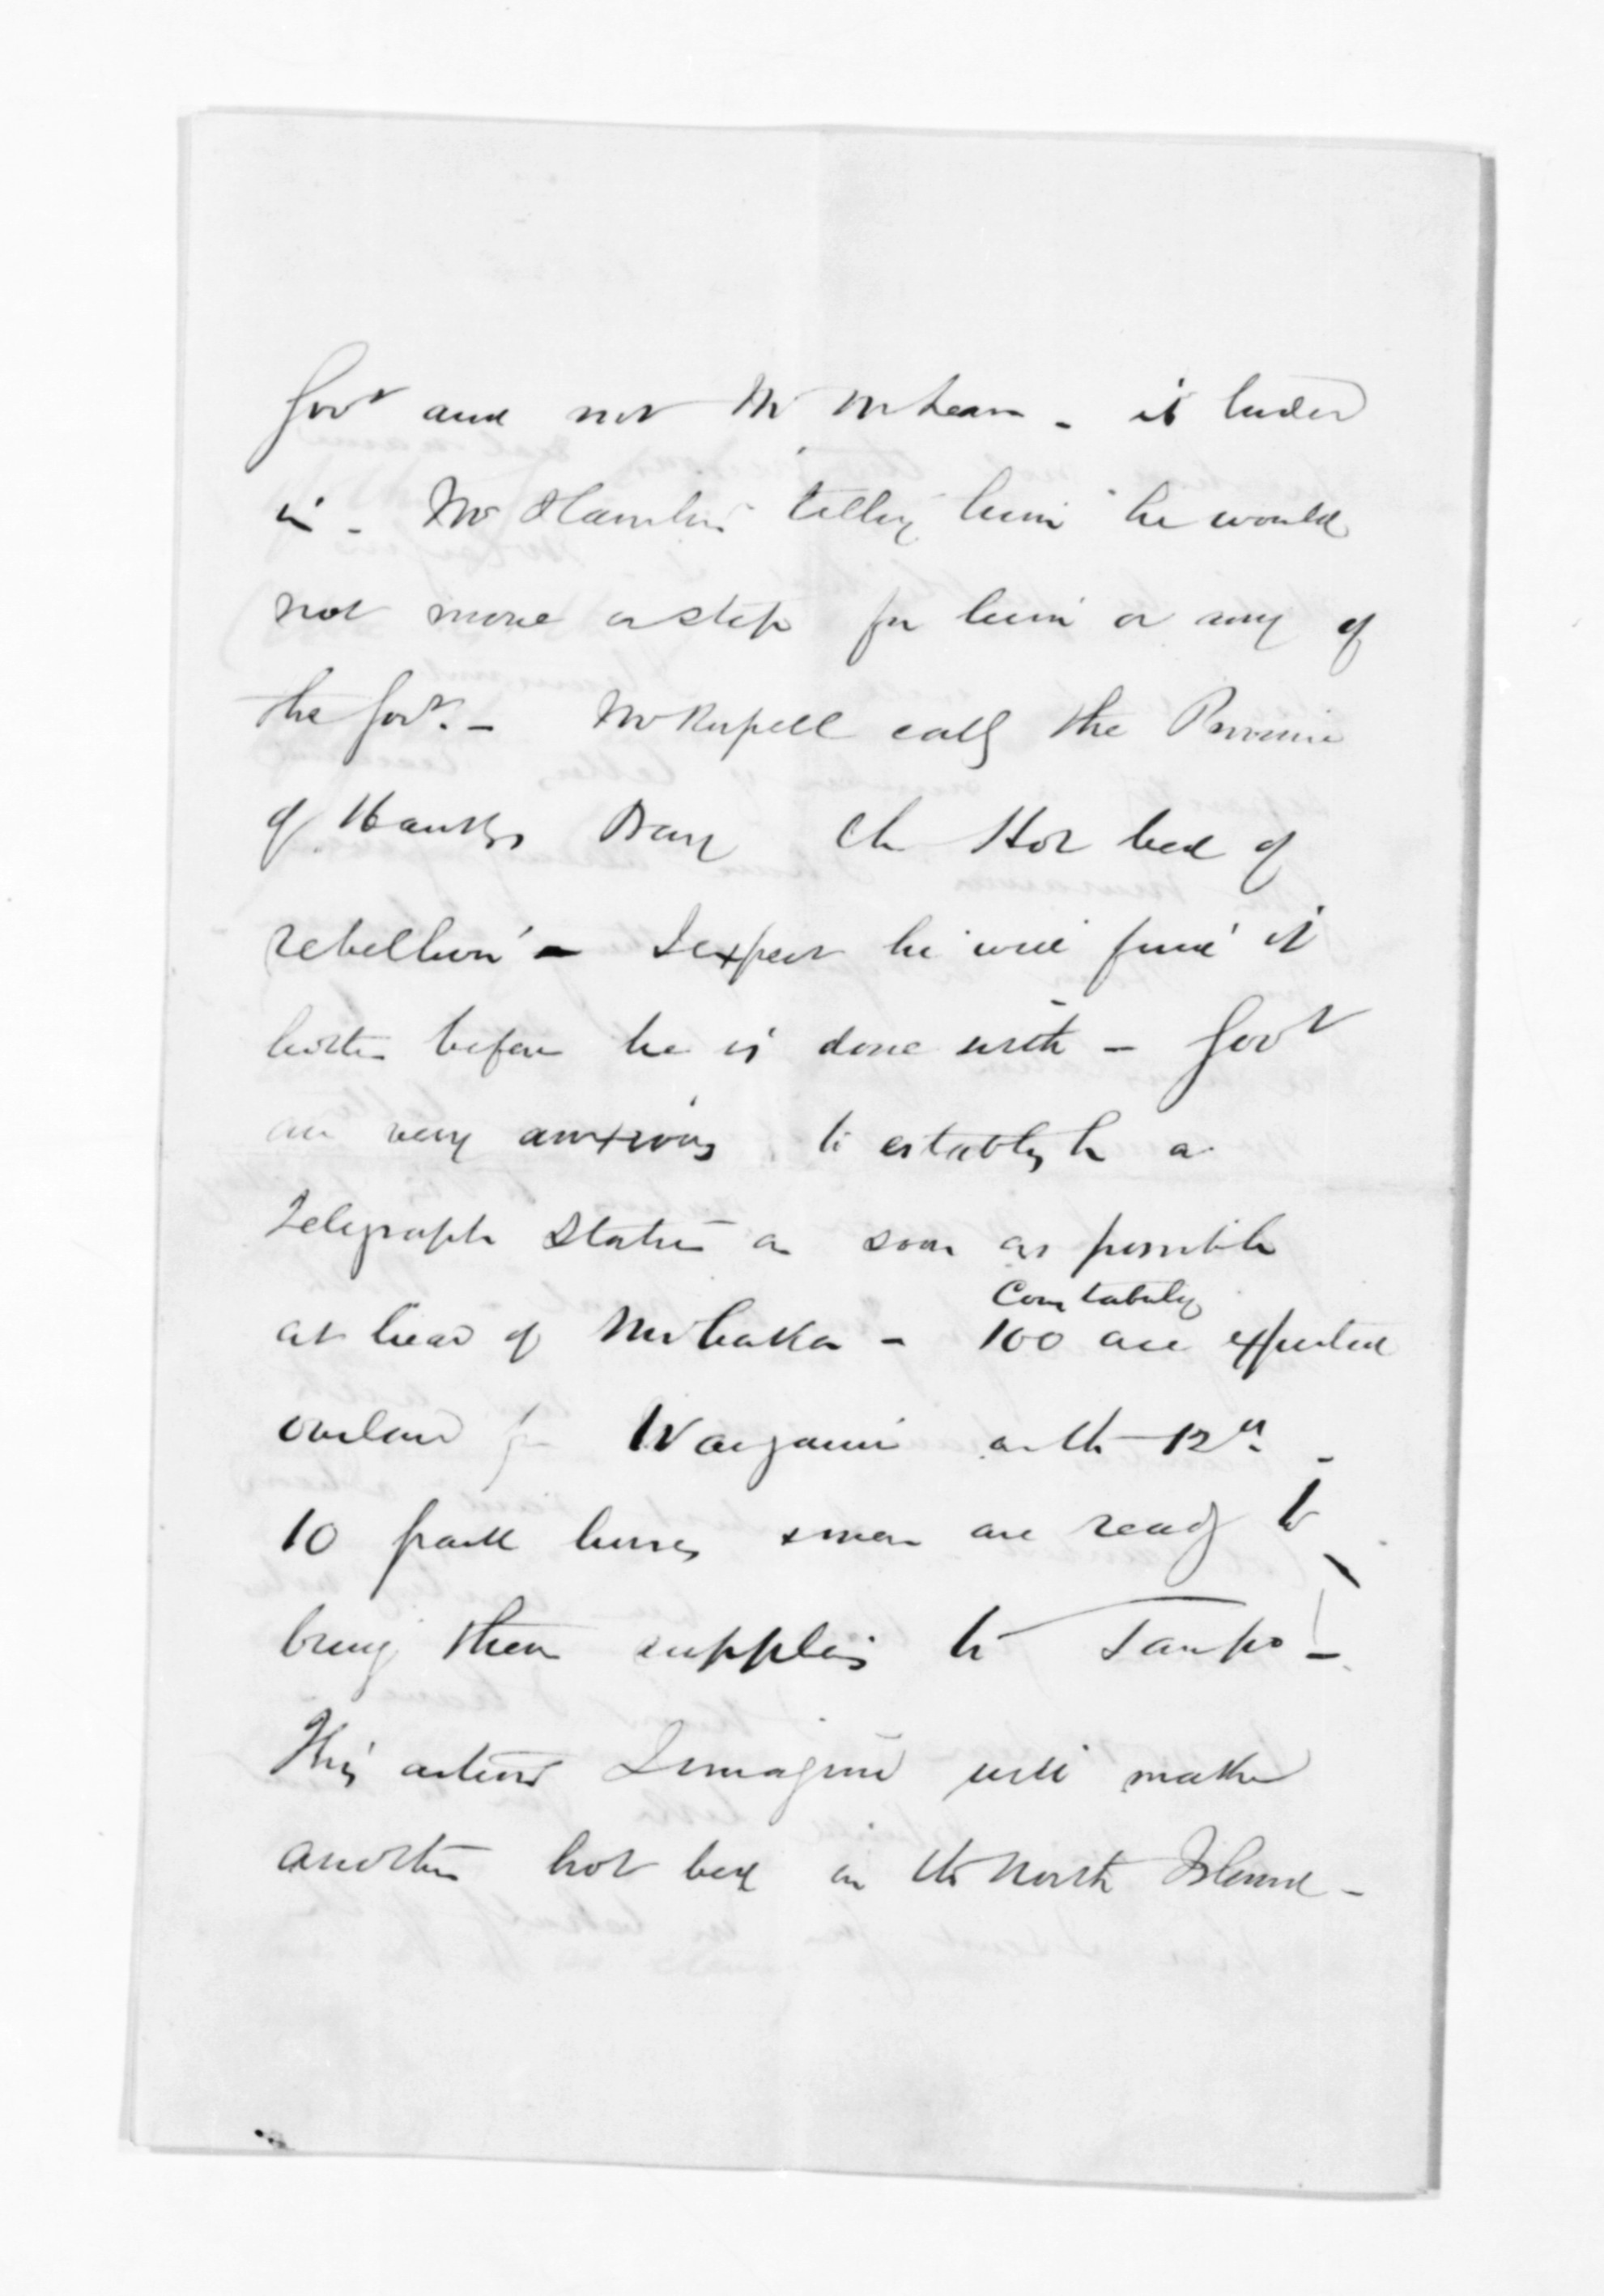 Govt and not Mr McLean - it ended
in - Mr Hamlin telling him he would
not move a step for him or any of
the Govt. - Mr Russell calls the Province
of Hawkes Bay the Hot bed of
rebellion - I expect he will find it
hotter before he is done with - Govt
are very anxious to establish a
Telegraph Station as soon as possible
Constabulary
at head of Mohaka - 100 are expected
overland from Wanganui on the 12th -
10 pack horses & men are ready to
bring them supplies to Taupo -
This action I imagine will make
another hot bed in the North Island -